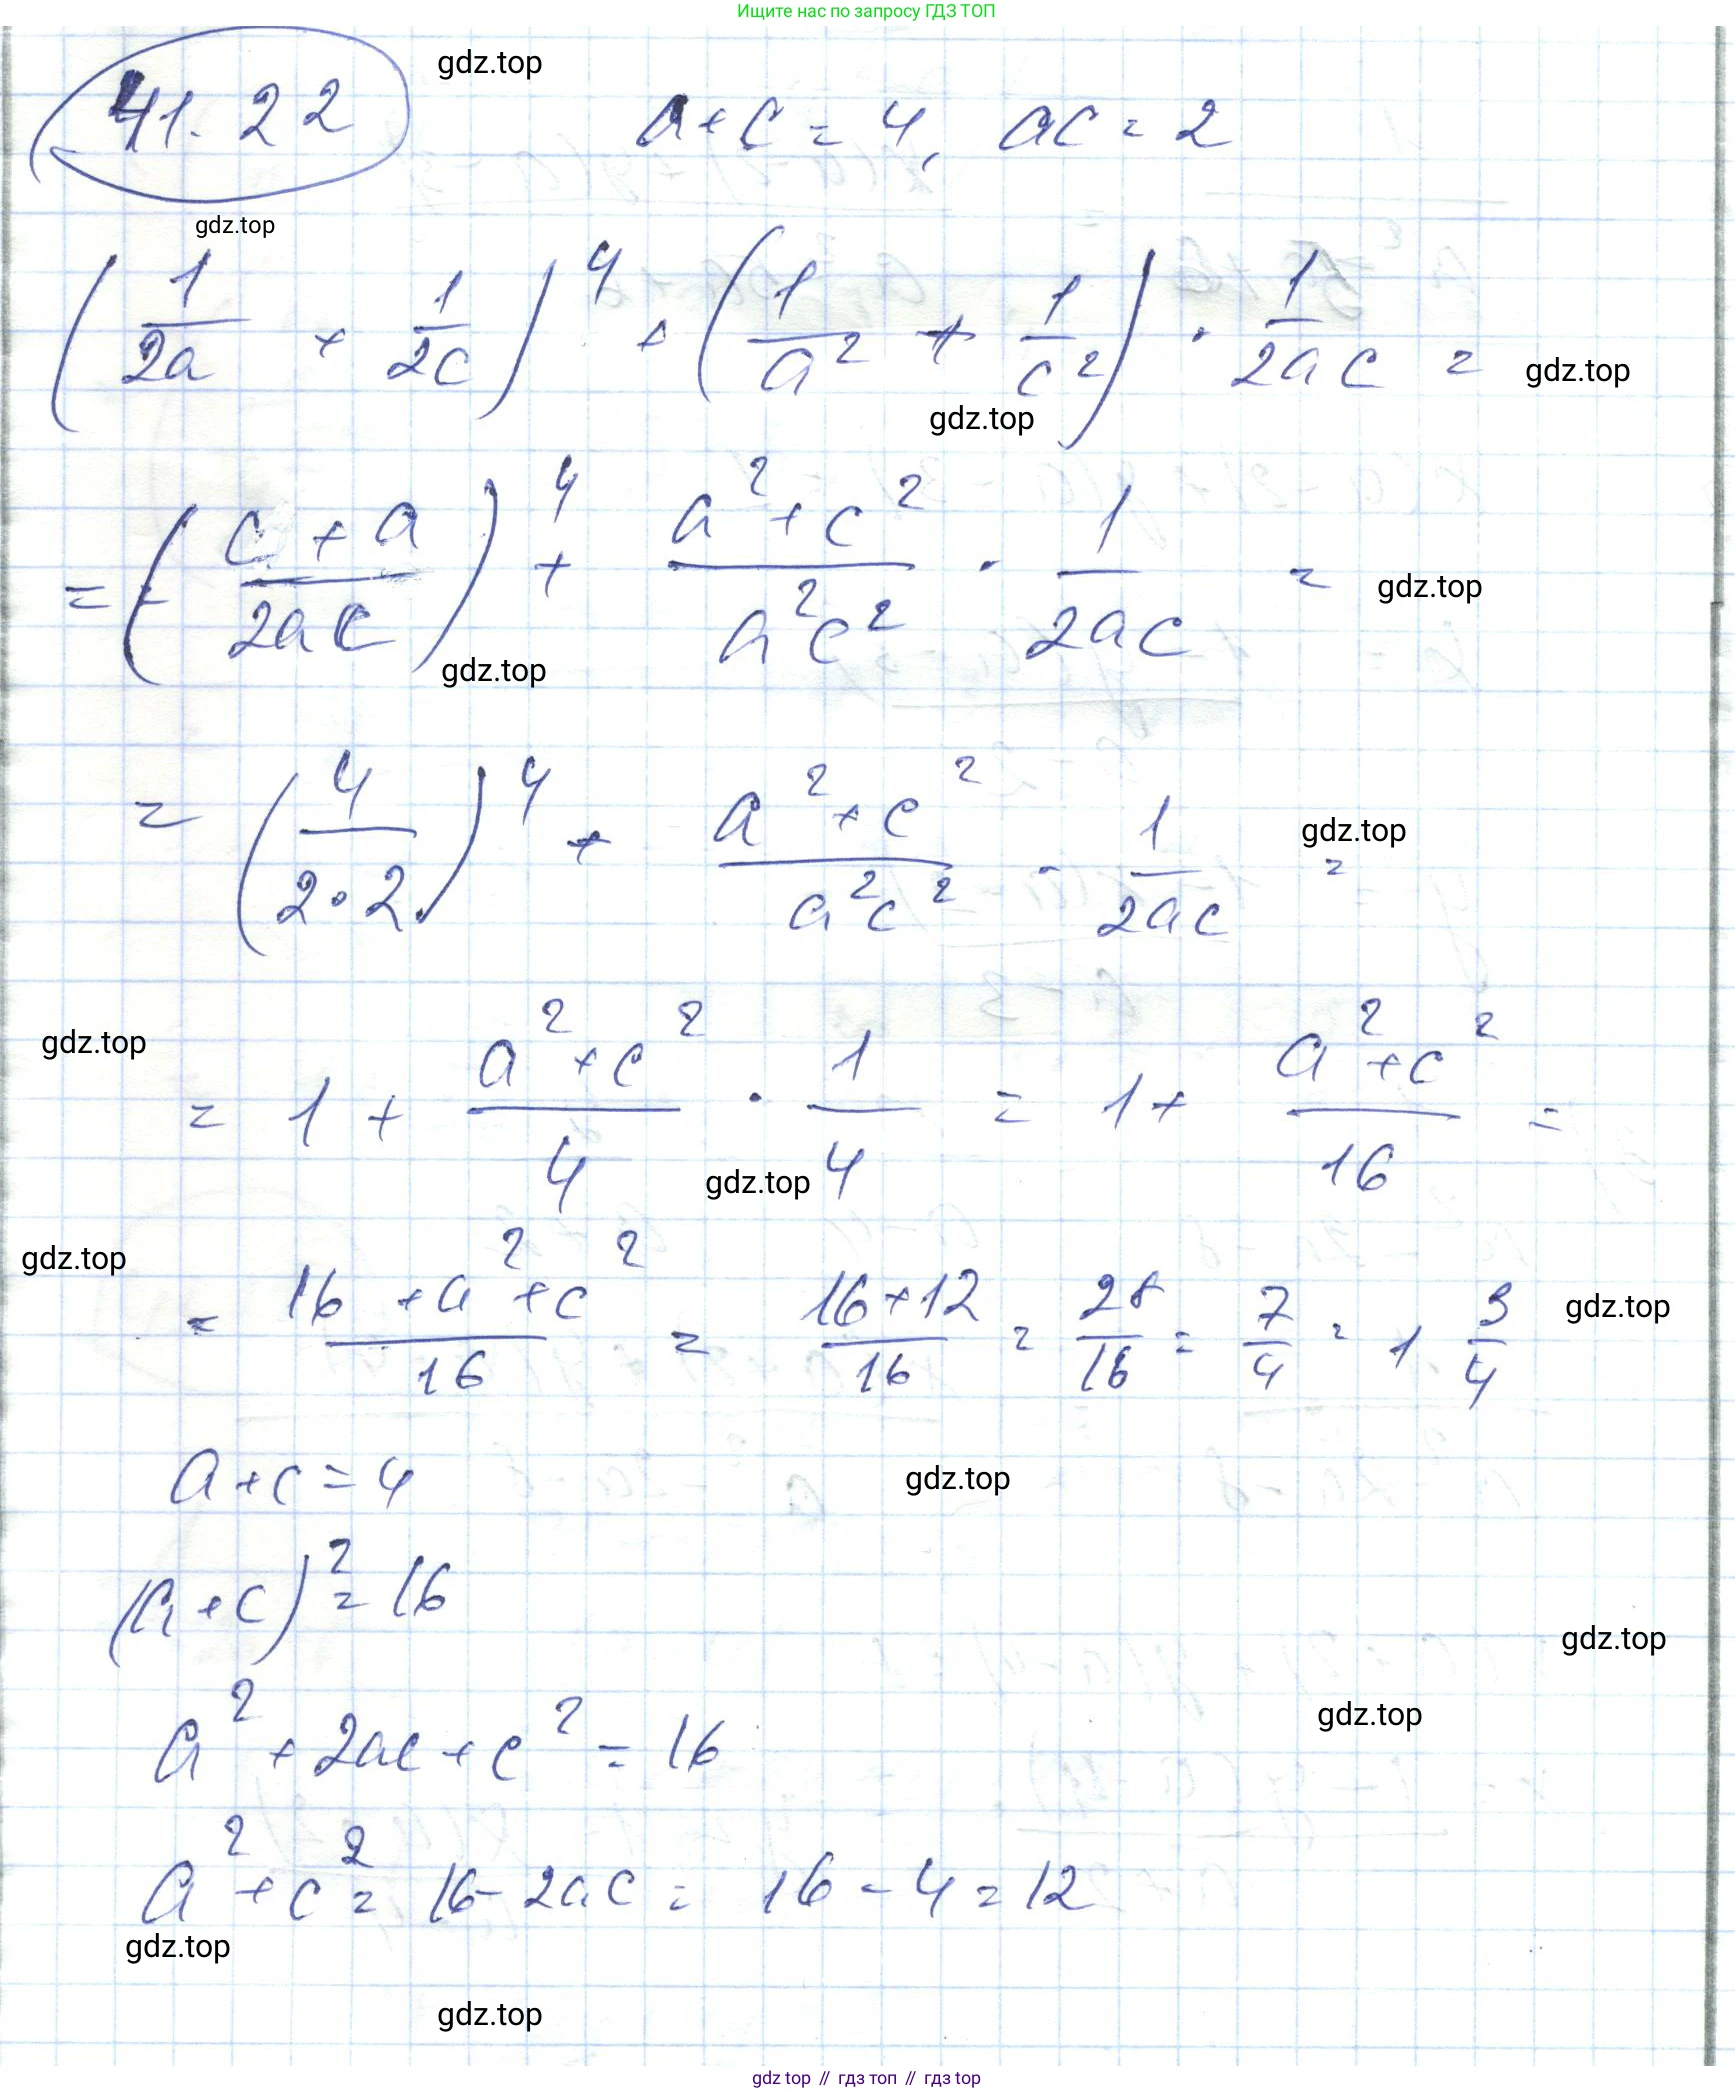 Ищите нас по запросу ГДЗ ТОП
41.22 gdz.top a+c=4, ac=2
gdz.top
(1/2a + 1/2c)^4 + (1/a^2 + 1/c^2) · 1/2ac = gdz.top
gdz.top
= (c+a/2ac)^4 + a^2+c^2/a^2c^2 · 1/2ac = gdz.top
gdz.top
= (4/2·2)^4 + a^2+c^2/a^2c^2 · 1/2ac = gdz.top
gdz.top
= 1 + a^2+c^2/4 · 1/4 = 1 + a^2+c^2/16 =
gdz.top
gdz.top
= 16+a^2+c^2/16 = 16+12/16 = 28/16 = 7/4 = 1 3/4 gdz.top
a+c=4 gdz.top
(a+c)^2=16
gdz.top
gdz.top
a^2+2ac+c^2=16
a^2+c^2=16-2ac=16-4=12
gdz.top
gdz.top
gdz top // гдз топ // гдз top